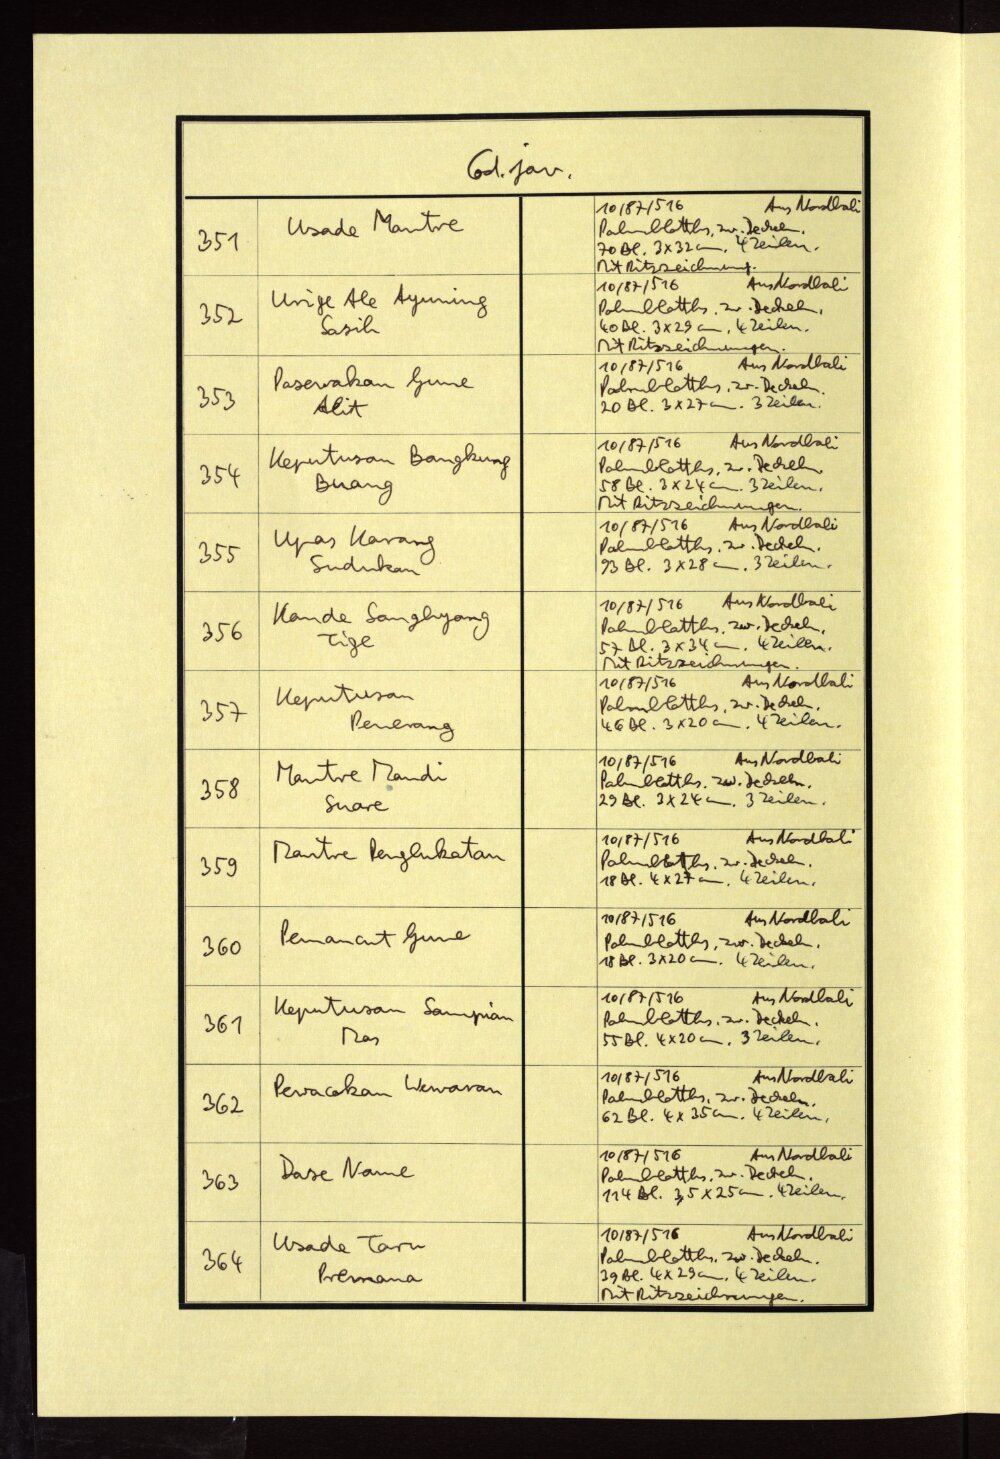 Cod. jav.
351
Usade Mantre
10/87/516 Aus Nordbali
Palmblatths. zw. Deckeln.
70 Bl. 3x32 cm. 4 Zeilen.
Mit Ritzzeichnung.
352
Urige Ale Ayuning
Sasih
10/87/516 Aus Nordbali
Palmblatths. zw. Deckeln.
40 Bl. 3x29 cm. 4 Zeilen.
Mit Ritzzeichnungen.
353
Pasewakan Gune
Alit
10/87/516 Aus Nordbali
Palmblatths. zw. Deckeln.
20 Bl. 3x27 cm. 3 Zeilen.
354
Keputusan Bangkung
Buang
10/87/516 Aus Nordbali
Palmblatths. zw. Deckeln.
58 Bl. 3x24 cm. 3 Zeilen.
Mit Ritzzeichnungen.
355
Upas Karang
Sudukan
10/87/516 Aus Nordbali
Palmblatths. zw. Deckeln.
93 Bl. 3x28 cm. 3 Zeilen.
356
Kande Sanghyang
Tige
10/87/516 Aus Nordbali
Palmblatths. zw. Deckeln.
57 Bl. 3x34 cm. 4 Zeilen.
Mit Ritzzeichnungen.
357
Keputusan
Penerang
10/87/516 Aus Nordbali
Palmblatths. zw. Deckeln.
46 Bl. 3x20 cm. 4 Zeilen.
358
Mantre Mandi
Suare
10/87/516 Aus Nordbali
Palmblatths. zw. Deckeln.
29 Bl. 3x24 cm. 3 Zeilen.
359
Mantre Penglukatan
10/87/516 Aus Nordbali
Palmblatths. zw. Deckeln.
18 Bl. 4x27 cm. 4 Zeilen.
360
Pemancut Gune
10/87/516 Aus Nordbali
Palmblatths. zw. Deckeln.
18 Bl. 3x20 cm. 4 Zeilen.
361
Keputusan Sampian
Mas
10/87/516 Aus Nordbali
Palmblatths. zw. Deckeln.
55 Bl. 4x20 cm. 3 Zeilen.
362
Pewacakan Wewaran
10/87/516 Aus Nordbali
Palmblatths. zw. Deckeln.
62 Bl. 4x35 cm. 4 Zeilen.
363
Dase Name
10/87/516 Aus Nordbali
Palmblatths. zw. Deckeln.
114 Bl. 3,5x25 cm. 4 Zeilen.
364
Usade Taru
Premana
10/87/516 Aus Nordbali
Palmblatths. zw. Deckeln.
39 Bl. 4x29 cm. 4 Zeilen.
Mit Ritzzeichnungen.